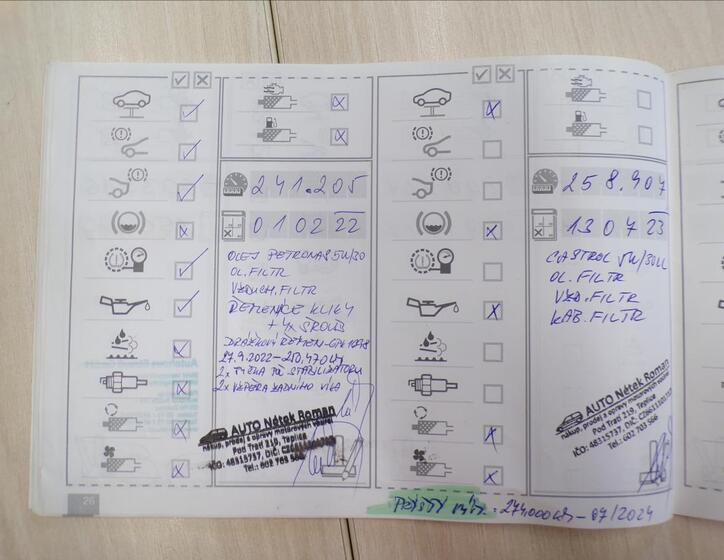 241.205
010222
OLEJ PETRONAS 5W/30
OL. FILTR
VZDUCH. FILTR
ŘEMENICE KLIKY
+ 4x ŠROUB
27.9.2022 – 250,470
2x TYČKA STABILIZÁTORU
2x VZPĚRA ZADNÍHO VÍKA
AUTO Nétek Roman
nákup, prodej a opravy motorových vozidel
Pod Tratí 219, Teplice
IČO: 48315737, DIČ:
Tel.: 602 703 566
26
258.907
130723
CASTROL 5W/30LL
OL. FILTR
VZD. FILTR
KAB. FILTR
AUTO Nétek Roman
nákup, prodej a opravy motorových vozidel
Pod Tratí 219, Teplice
IČO: 48315737, DIČ:
Tel.: 602 703 566
PŘÍŠTÍ 274000 – 07/2024